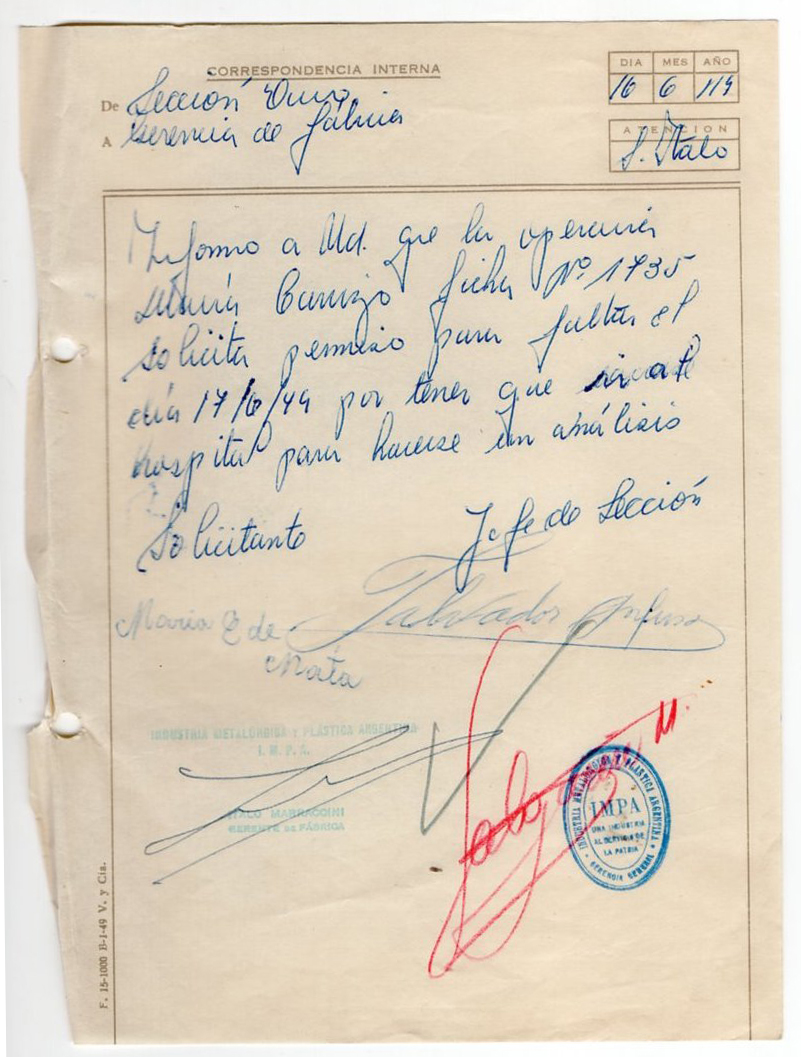 CORRESPONDENCIA INTERNA
DIA MES AÑO
16 6 49
De Sección
A Gerencia de Fábrica
ATENCION
S. Italo
Informo a Ud. que la operaria
María Carrizo ficha Nº 1735
solicita permiso para faltar el
día 17/6/49 por tener que ir al
hospital para hacerse un análisis
Solicitante
Jefe de Sección
Maria E de
Mata
INDUSTRIA METALÚRGICA Y PLÁSTICA ARGENTINA
I. M. P. A.
ITALO MARRACCINI
GERENTE DE FÁBRICA
INDUSTRIA METALÚRGICA Y PLÁSTICA ARGENTINA
IMPA
UNA INDUSTRIA
AL SERVICIO DE
LA PATRIA
GERENCIA GENERAL
F. 15-1000 B-1-49 V. y Cía.